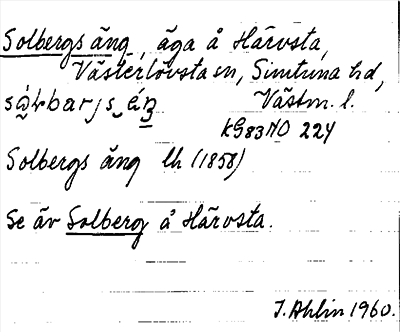 Solbergs äng, äga å Härvsta,
Västerlövsta sn, Simtuna hd,
Västm. l.
KG83NO 224
Solbergs äng lk (1858)
Se äv Solberg å Härvsta.
J. Ahlin 1960.